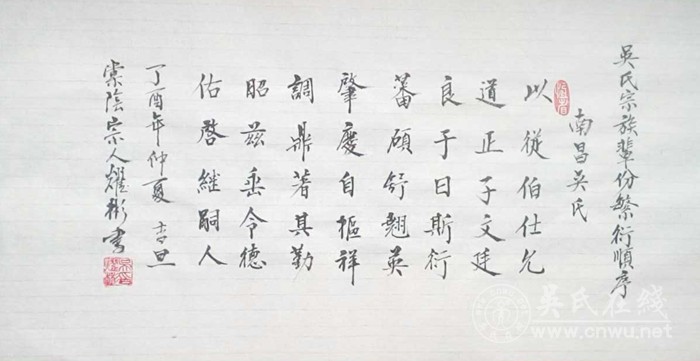 吳氏宗族輩份繁衍順序
南昌吳氏
以從伯仕允
道正子文廷
良于曰斯衍
蕃碩舒翹英
肇慶自樞祥
調鼎著其勤
昭茲垂令德
佑啓継嗣人
丁酉年仲夏 吉旦
棠陰宗人耀彬書
吳氏在线
www.cnwu.net